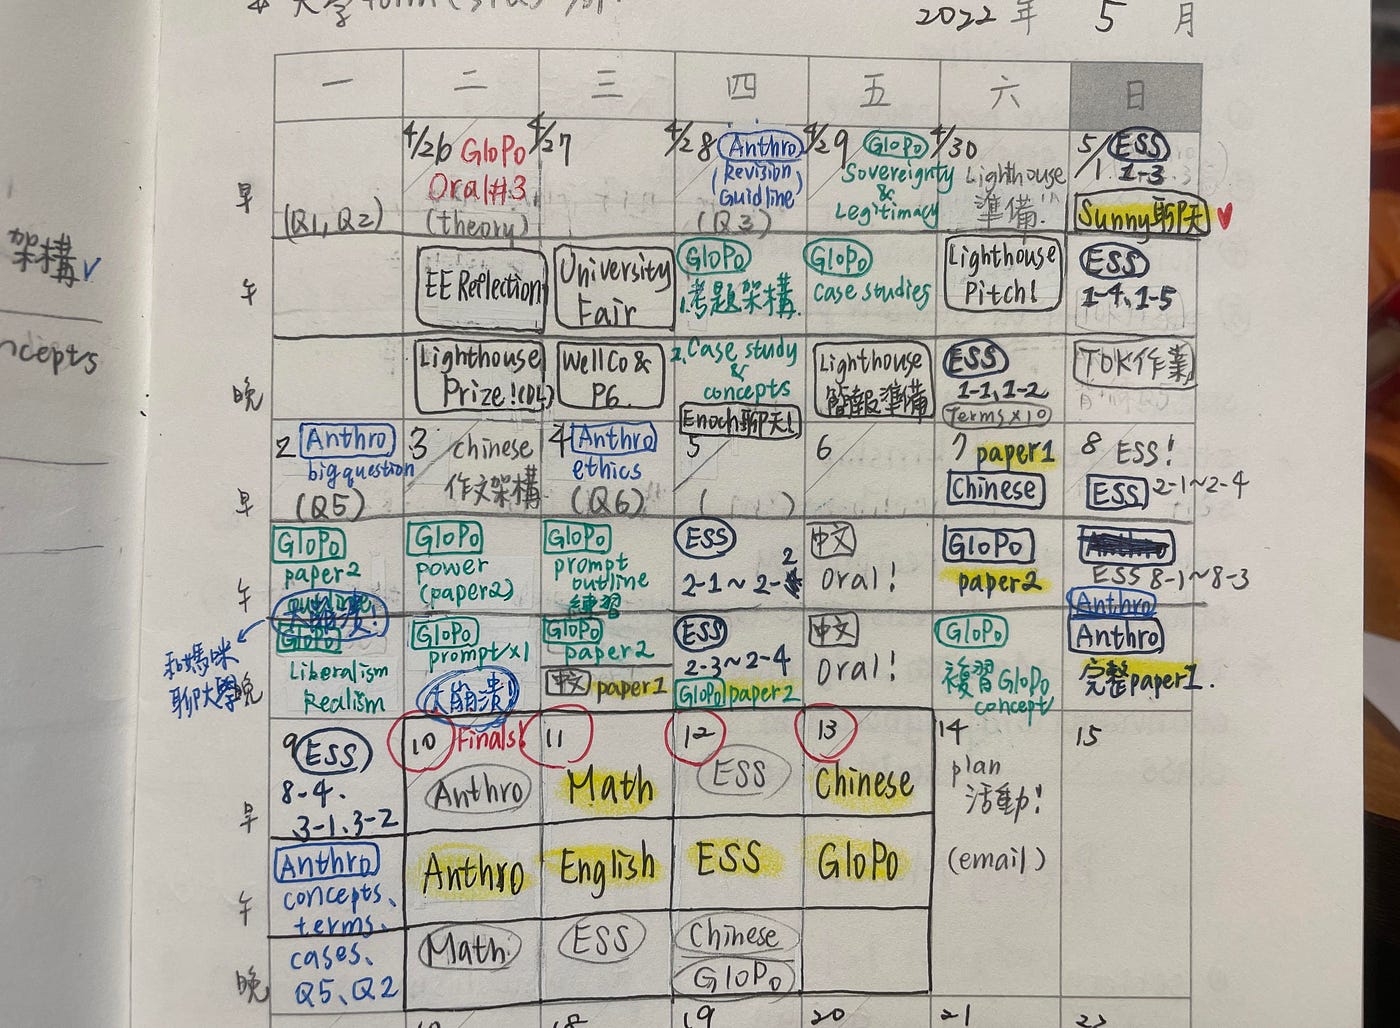 大学
2022 年 5 月
一 二 三 四 五 六 日
架構
ncepts
早
(Q1, Q2)
4/26 GloPo
Oral#3
(theory)
4/27
4/28 Anthro
(Revision
Guidline)
(Q3)
4/29 GloPo
Sovereignty
&
Legitimacy
4/30
Lighthouse
準備.
5/1 ESS
1-3
Sunny聊天
午
EE Reflection
University
Fair
GloPo
1.考題架構
GloPo
case studies
Lighthouse
Pitch!
ESS
1-4、1-5
晚
Lighthouse
Prize!(DL)
WellCo &
PG.
2.Case study
&
concepts
Enoch聊天!
Lighthouse
簡報準備
ESS
1-1, 1-2
Terms×10
TOK作業
早
2 Anthro
big question
(Q5)
3 chinese
作文架構
4 Anthro
ethics
(Q6)
5
( )
6
7 paper1
Chinese
8 ESS!
ESS 2-1~2-4
午
GloPo
paper2
GloPo
power
(paper2)
GloPo
prompt
outline
練習
ESS
2-1~2-2
中文
oral!
GloPo
paper2
ESS 8-1~8-3
Anthro
晚
和媽咪
聊大學
GloPo
Liberalism
Realism
GloPo
prompt×1
大崩潰!
GloPo
paper2
中文 paper1
ESS
2-3~2-4
GloPo paper2
中文
Oral!
GloPo
複習GloPo
concept
Anthro
完整paper1.
早
9 ESS
8-4.
3-1、3-2
10 Finals!
Anthro
11
Math
12
ESS
13
Chinese
14
plan
活動!
(email)
15
午
Anthro
concepts、
terms、
Anthro
English
ESS
GloPo
晚
cases、
Q5、Q2
Math
ESS
Chinese
GloPo
18 19 20 21 22